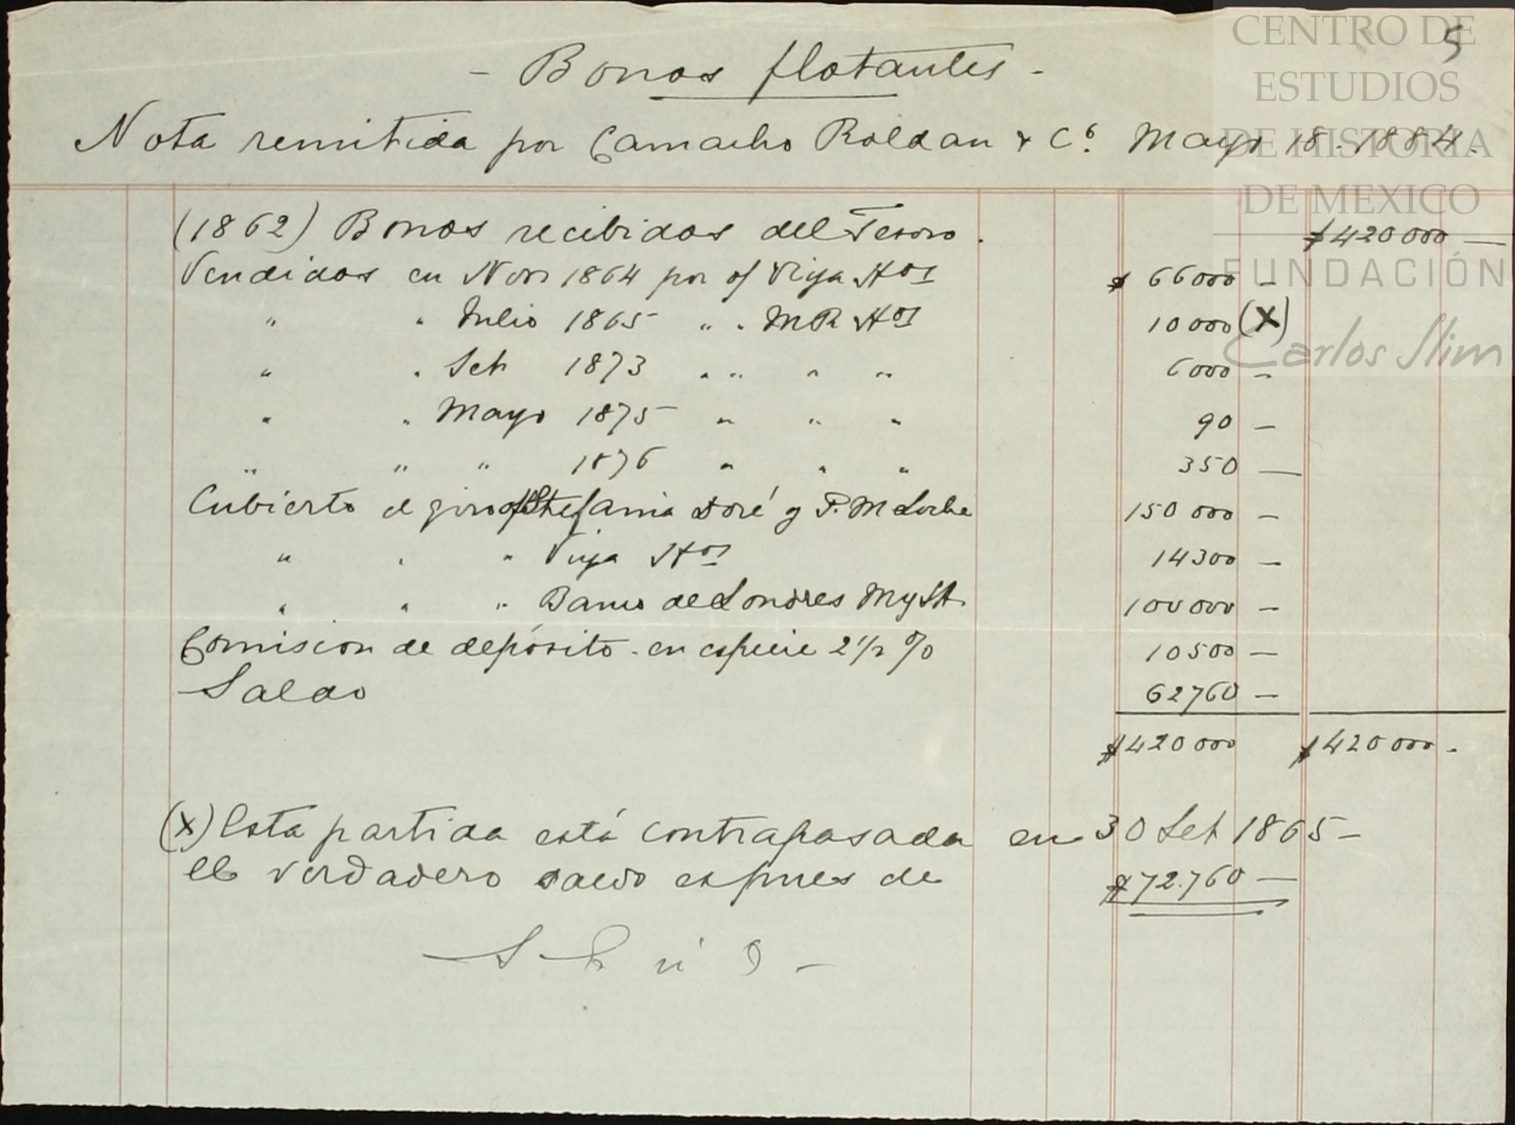 5
- Bonos flotantes -
Nota remitida por Camacho Roldan & Cª. Mayo 18. 1884.
(1862) Bonos recibidos del Tesoro. $420000 —
Vendidos en Nov 1864 por o/ Viya Hos $ 66000 —
" " Julio 1865 " " MR Hos 10000 (X)
" " Set 1873 " " " " 6000 —
" " Mayo 1875 " " " 90 —
" " " 1876 " " " 350 —
Cubierto el giro of Stefania Doré y P. M 150 000 —
" " " Viya Hos 14300 —
" " " Banco de Londres My SA 100000 —
Comision de depósito en especie 2 1/2 % 10500 —
Saldo 62760 —
$420000 $420000.
(X) Esta partida está contrapasada en 30 Set 1865 —
el verdadero saldo es pues de $72.760 —
CENTRO DE
ESTUDIOS
DE HISTORIA
DE MEXICO
FUNDACIÓN
Carlos Slim